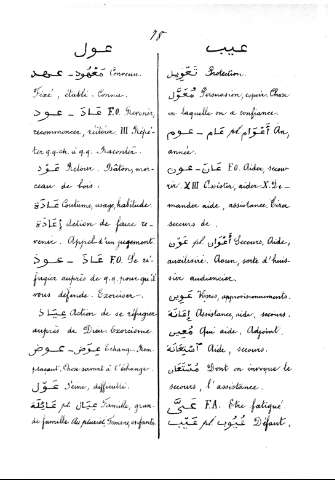 95
عول
مَعْهُود - عهد Convenu.
Fixé, établi. Connu.
عَادَ - عود F.O. Revenir,
recommencer, réitérer III Répé-
ter q.q.ch. à q.q. Raconter.
عَوْد Retour. Bâton, mor-
ceau de bois.
عَادَة Coutume, usage, habitude
إِعَادَة Action de faire re-
venir. Appel d'un jugement
عَاذَ - عوذ F.O. Se ré-
fugier auprès de q.q. pour qu'il
vous défende. Exorciser.
عِيَاذ Action de se réfugier
auprès de Dieu. Exorcisme
عِوَض - عوض Echange. Rem-
plaçant. Chose servant à l'échange.
عَوْل Peine, difficulté.
عَائِلَة pl عِيَال Famille, gran-
de famille. Au pluriel Femme, enfants
عيب
تَعْوِيل Protection.
مُعَوَّل Persuasion, espoir. Chose
en laquelle on a confiance.
عوم - عَام pl أَعْوَام An,
année.
عون - عَانَ F.O. Aider, secou-
rir III Assister, aider. X. De-
mander aide, assistance. Tirer
secours de.
عَوْن pl أَعْوَان Secours, Aide,
auxiliaire. Aoun, sorte d'huis-
sier audiencier.
عَوِين Vivres, approvisionnements.
إِعَانَة Assistance, aide, secours.
مُعِين Qui aide, Adjoint.
اسْتِعَانَة Aide, secours.
مُسْتَعَان Dont on invoque le
secours, l'assistance.
عَيَّ F.A. Etre fatigué
عَيْب pl عُيُوب Défaut,